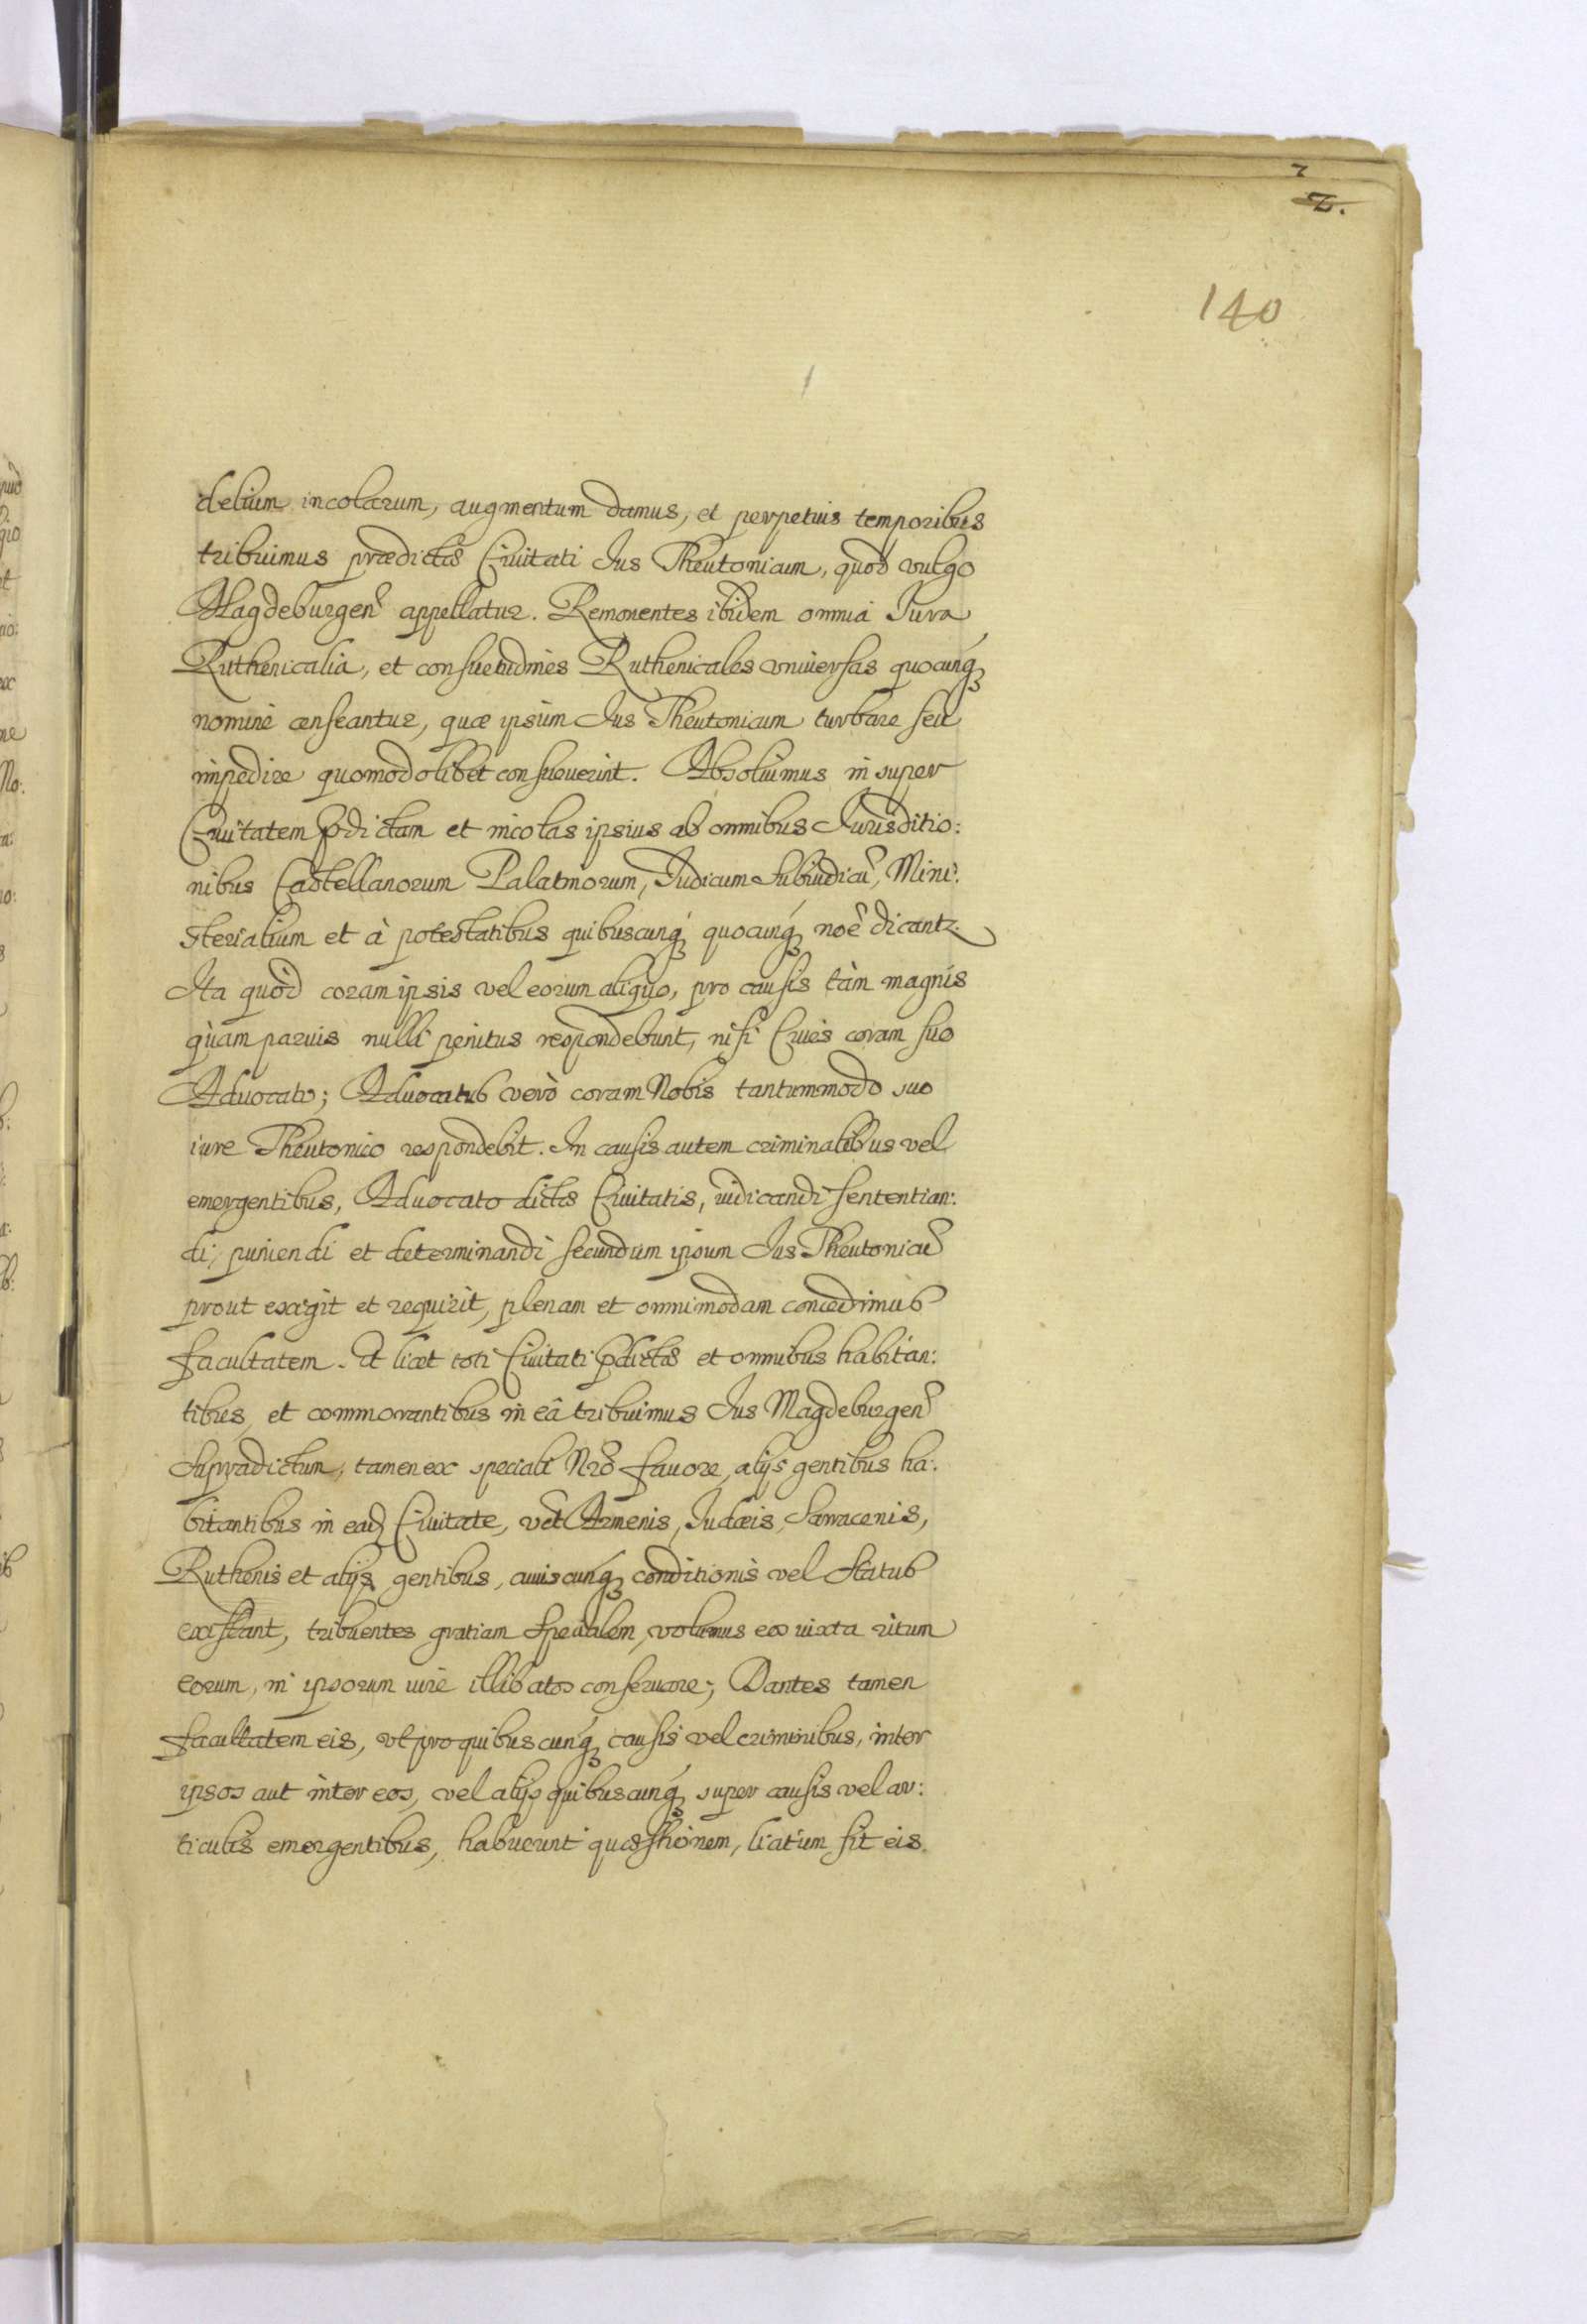 2
2.
140
delium incolarum, augmentum damus, et perpetuis temporibus
tribuimus prædictæ Ciuitati Jus Theutonicum, quod vulgo
Magdeburgen̄ appellatur. Remouentes ibidem omnia Jura
Ruthenicalia, et consuetudines Ruthenicales vniuersas quocunq́ꝫ
nomine censeantur, quæ ipsum Jus Theutonicum turbare seu
impedire quomodolibet consueuerint. Absoluimus insuper
Ciuitatem p̄dictam et incolas ipsius ab omnibus Jurisditio:
nibus Castellanorum Palatinorum, Judicum Subiudicū, Mini:
sterialium et à potestatibus quibuscunq́ꝫ quocunq́ꝫ noē dicantr.
Ita quòd coram ipsis vel eorum aliquo, pro causis tàm magnis
quàm paruis nulli penitus respondebunt, nisi Ciues coram suo
Aduocato; Aduocatus verò coram Nobis tantummodo suo
iure Theutonico respondebit. In causis autem criminalibus vel
emergentibus, Aduocato dictæ Ciuitatis, iudicandi sententian:
di, puniendi et determinandi secundum ipsum Jus Theutonicū
prout exigit et requirit, plenam et omnimodam concedimus
facultatem. Et licet toti Ciuitati p̄dictæ et omnibus habitan:
tibus, et commorantibus in eâ tribuimus Jus Magdeburgen̄
supradictum, tamen ex speciali Nr̄o fauore, alijs gentibus ha:
bitantibus in eadꝫ Ciuitate, vet Armenis, Judæis, Sarracenis,
Ruthenis et alijs gentibus, cuiuscunq́ꝫ conditionis vel status
existant, tribuentes gratiam specialem, volumus eos iuxta ritum
eorum, in ipsorum iure illibatos conseruare; Dantes tamen
facultatem eis, vt pro quibuscunq́ꝫ causis vel criminibus, inter
ipsos aut inter eos, vel alijs quibuscunq́ꝫ super causis vel ar:
ticulis emergentibus, habuerint quæstionem, licitum sit eis.